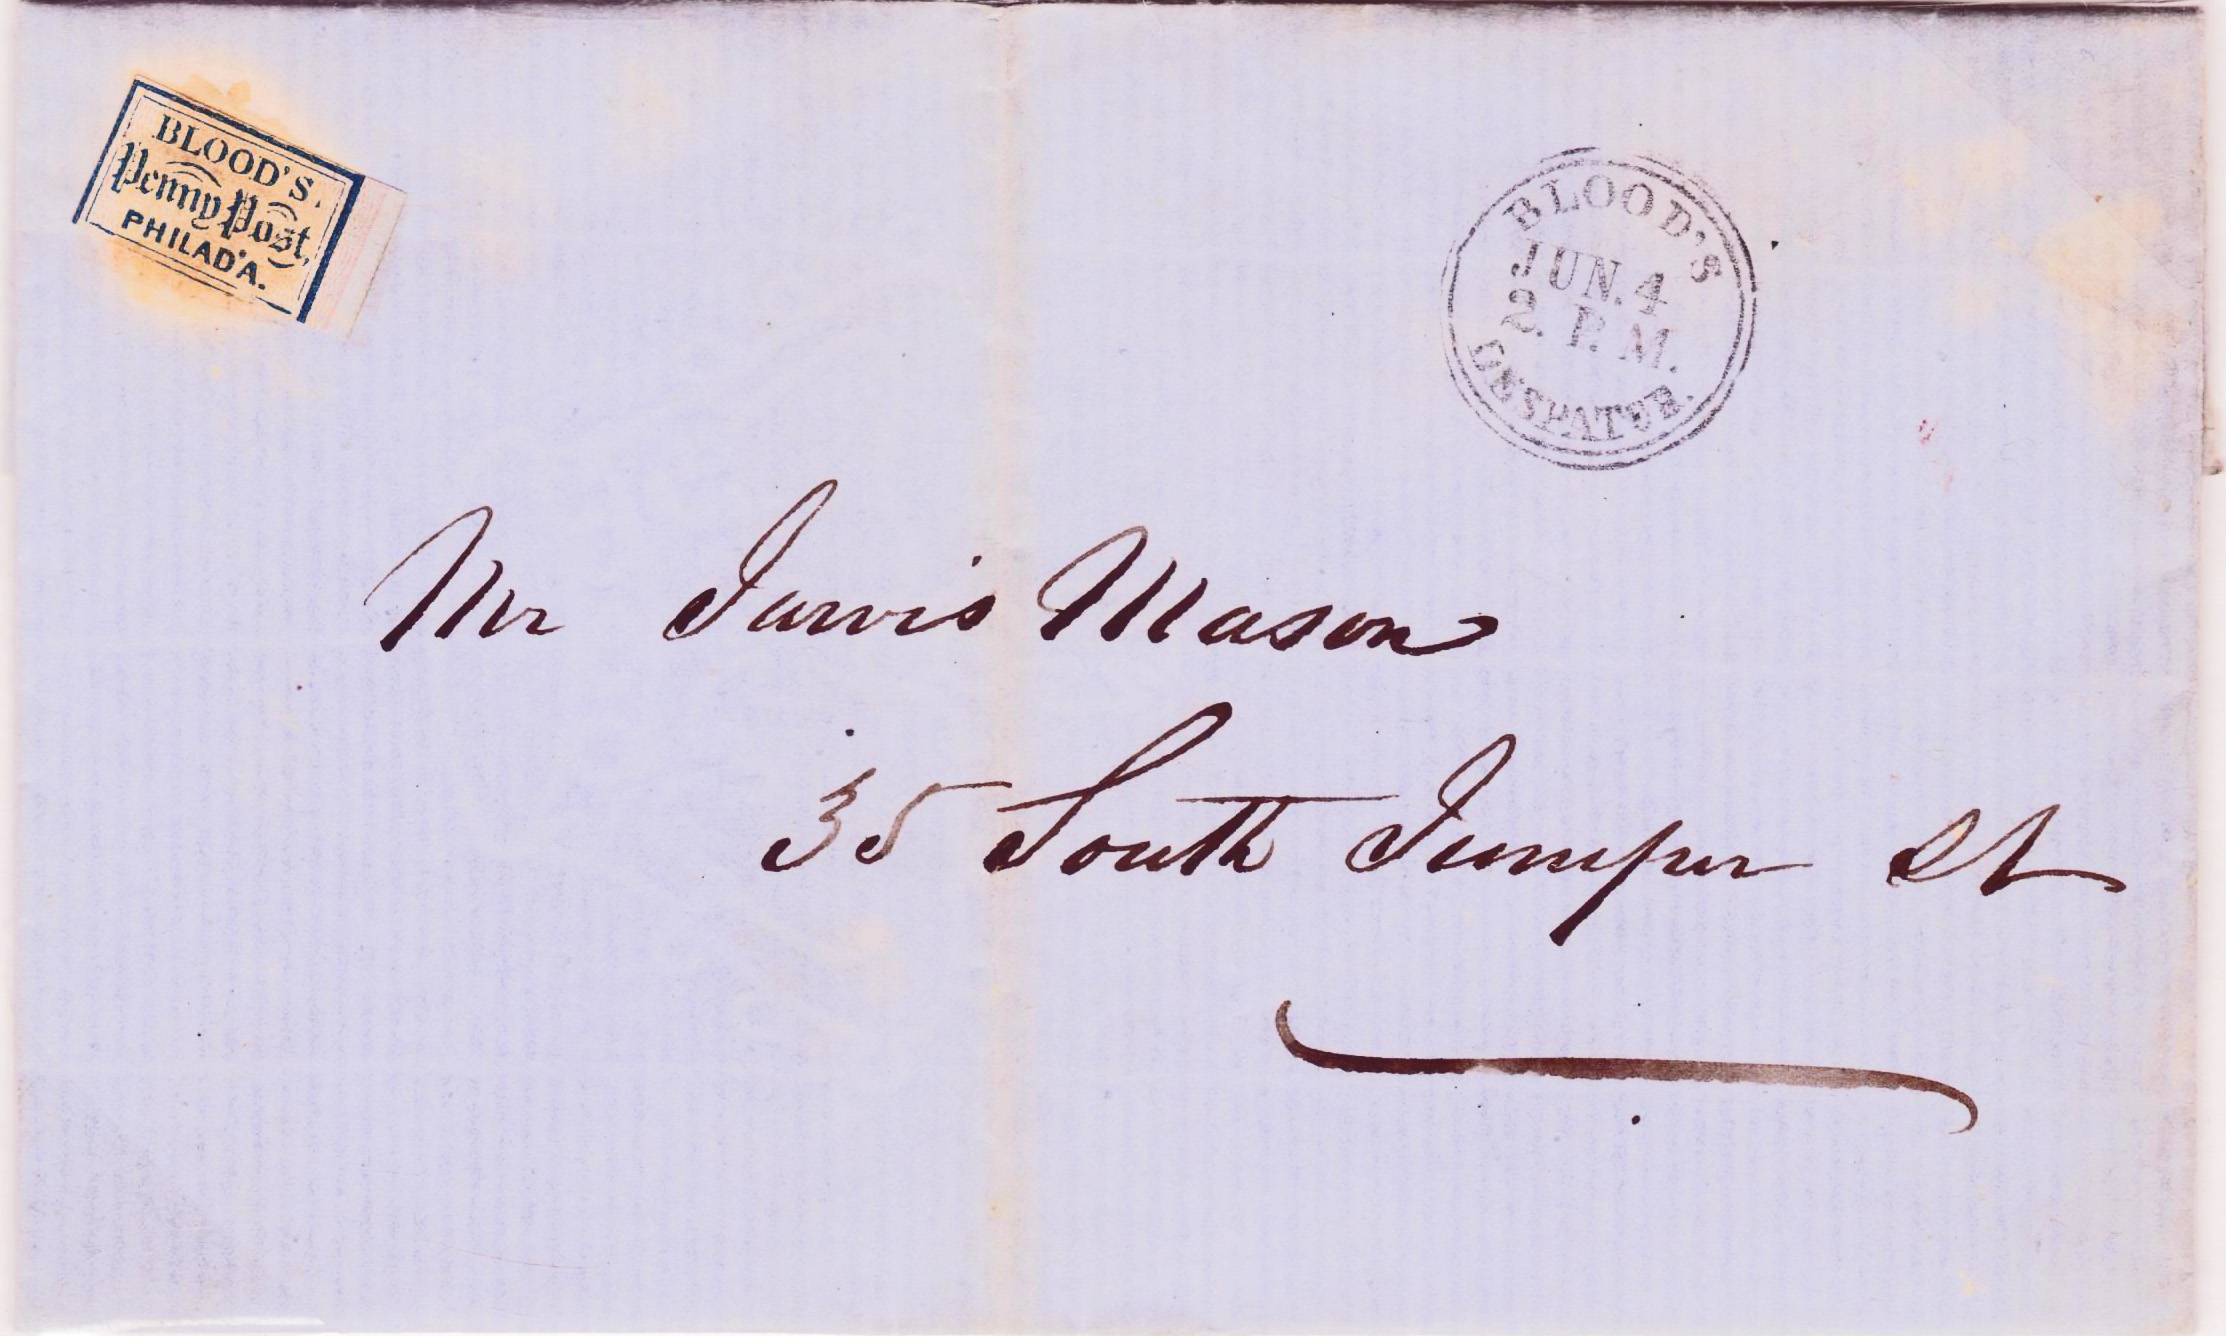 BLOOD'S.
Penny Post,
PHILAD'A.
BLOOD'S
JUN. 4
2. P. M.
DESPATCH.
Mr Jarvis Mason
35 South Juniper St